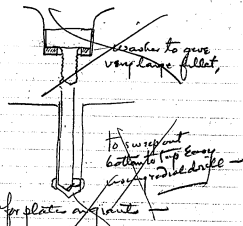 washer to give
very large fillet,
to sweep out
bottom to top easy
using radial drill —
for plates on